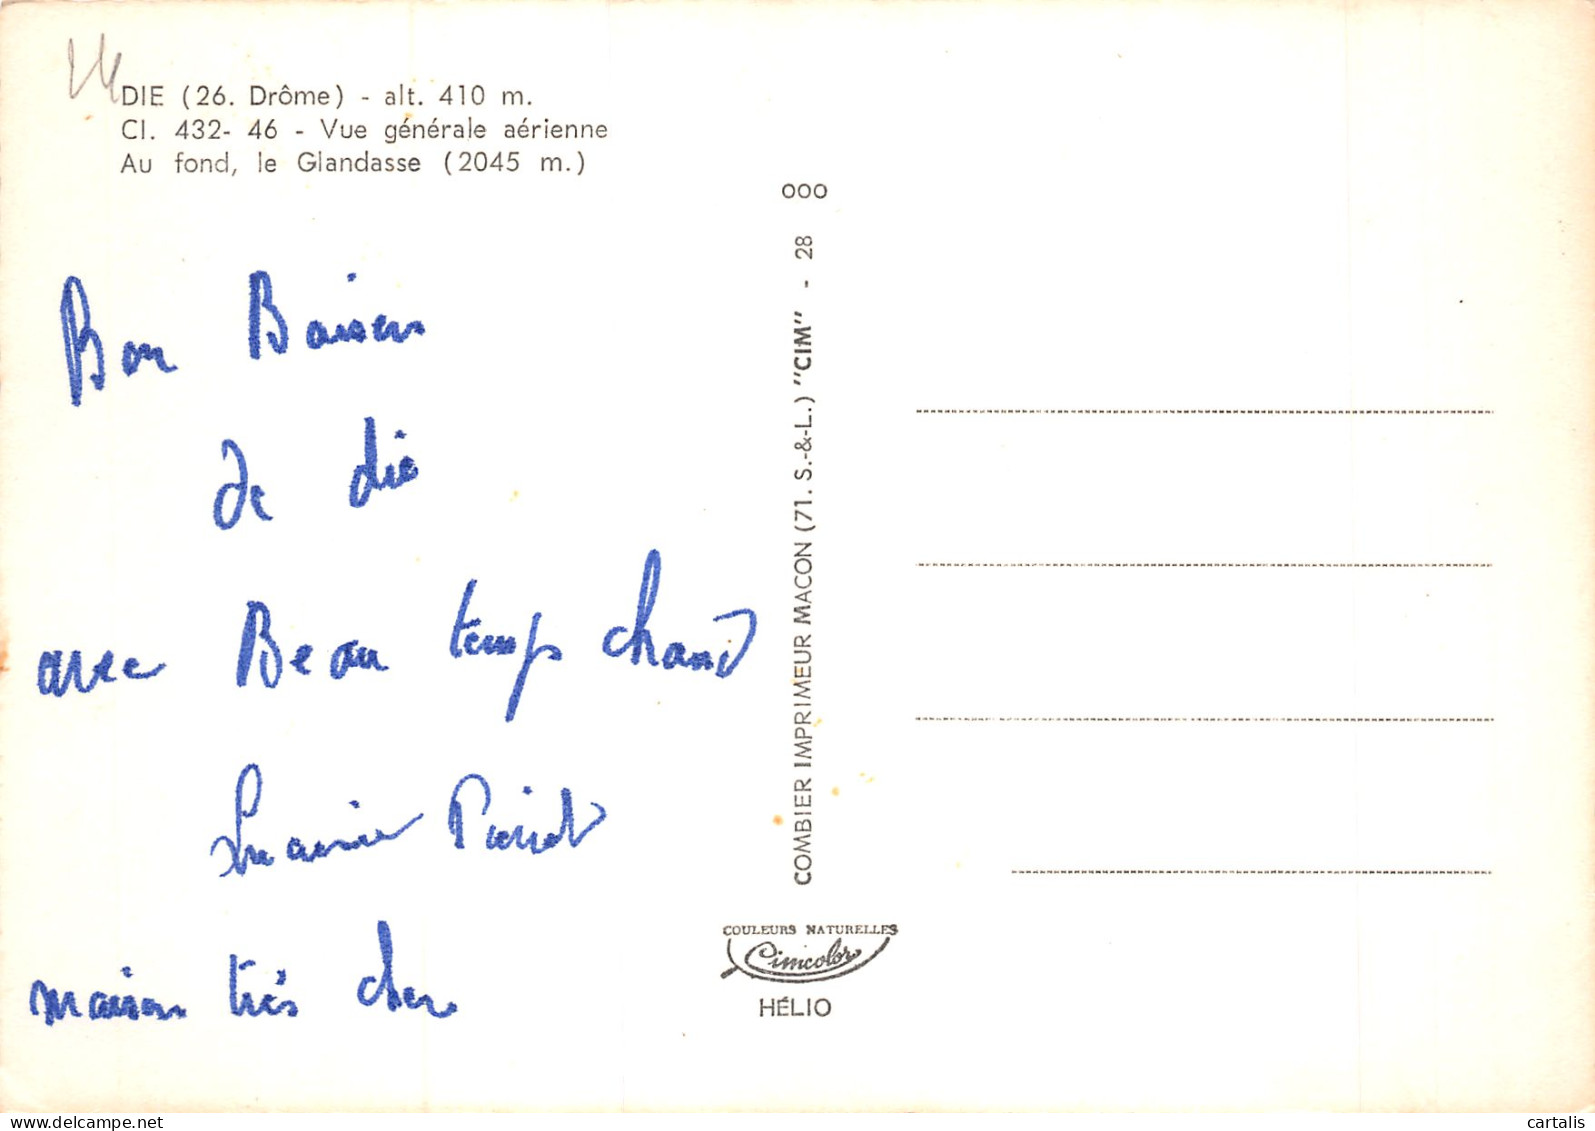 DIE (26. Drôme) - alt. 410 m.
Cl. 432- 46 - Vue générale aérienne
Au fond, le Glandasse (2045 m.)
Bon Baisers
de die
avec Beau temps chaud
maison très cher
OOO
COMBIER IMPRIMEUR MACON (71. S.-&-L.) "CIM" - 28
COULEURS NATURELLES
Cimcolor
HÉLIO
cartalis
delcampe.net